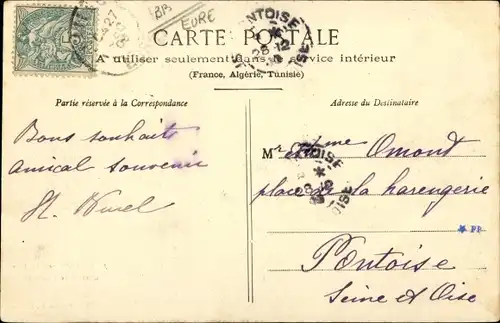 BB
EURE
PONTOISE
CARTE POSTALE
A utiliser seulement dans le service intérieur
(France, Algérie, Tunisie)
Partie réservée à la Correspondance
Adresse du Destinataire
Bons souhaits
amical souvenir
Mr et Mme Omond
place de la harengerie
PONTOISE
Pontoise
Seine et Oise